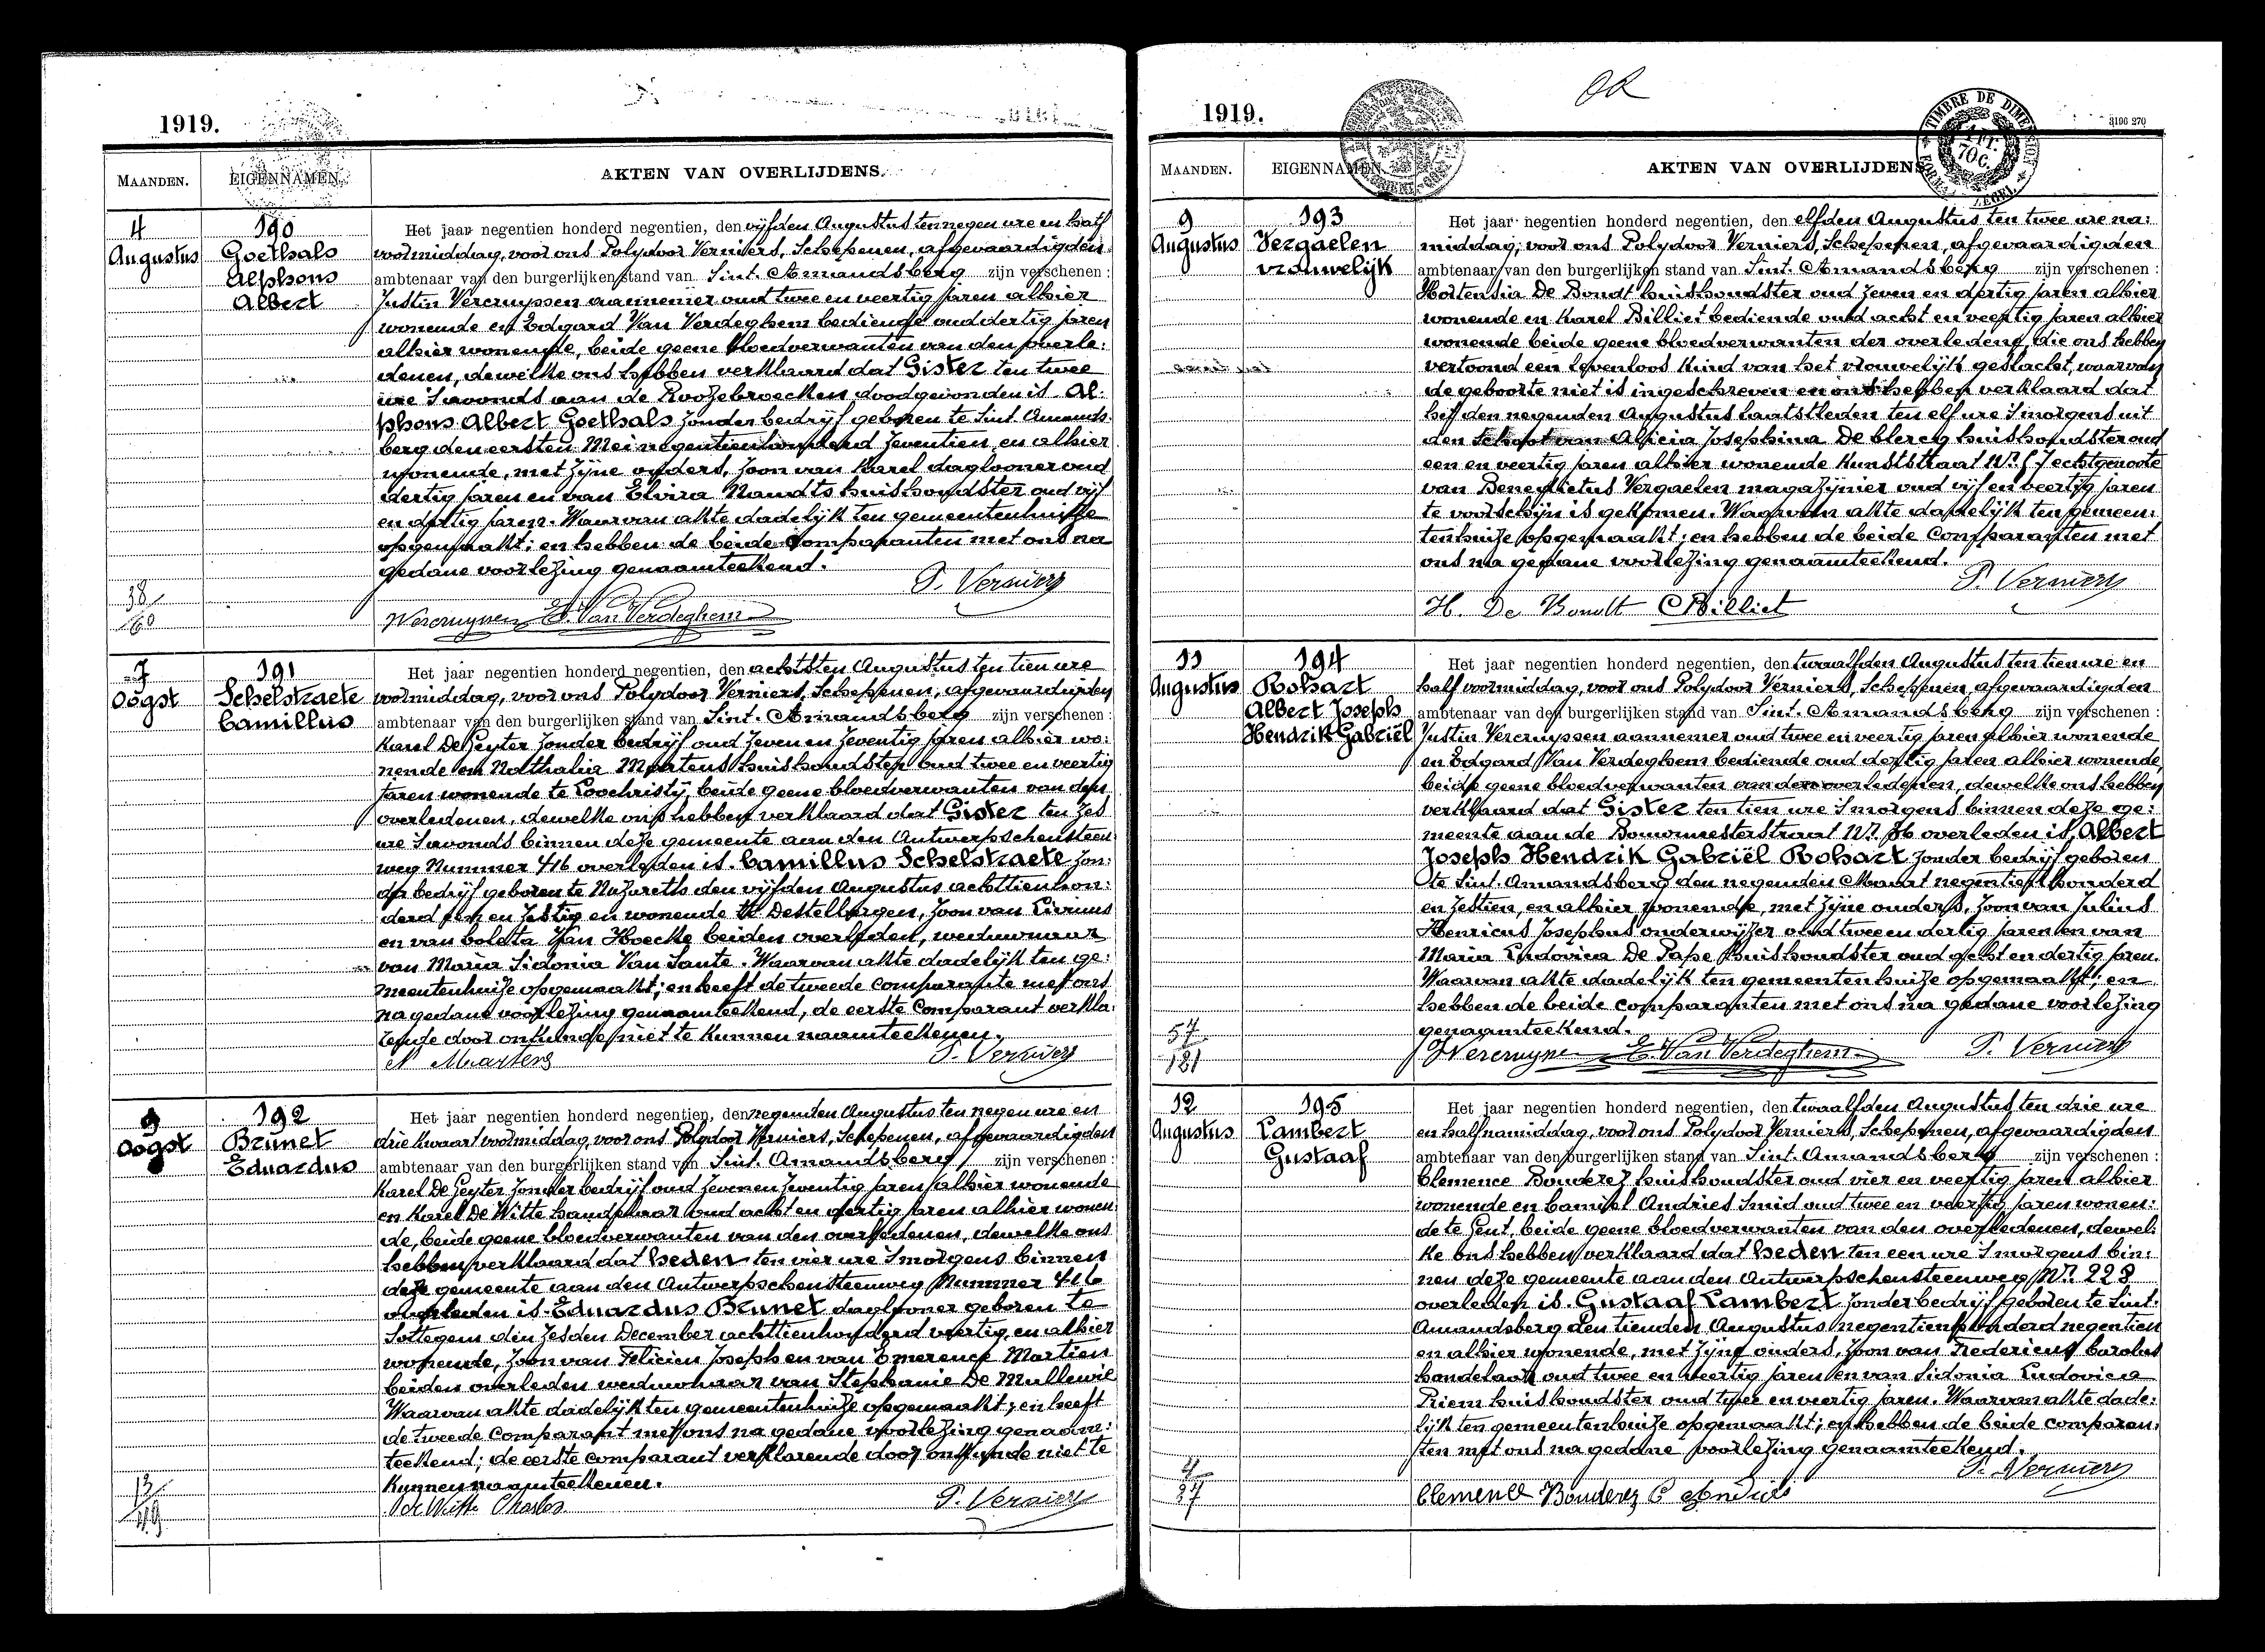 1919.
MAANDEN.
EIGENNAMEN.
AKTEN VAN OVERLIJDENS.
4
Augustus
190
Goethals
Alphons
Albert
Het jaar negentien honderd negentien, den vijfden Augustus ten negen ure en half
voormiddag, voor ons Polydoor Verniers, Schepenen, afgevaardigden
ambtenaar van den burgerlijken stand van Sint. Amandsberg zijn verschenen:
Justin Vercruyssen aannemer oud twee en veertig jaren alhier
wonende en Edgard Van Verdeghem bediende oud dertig jaren
alhier wonende, beide geene bloedverwanten van den overle:
denen, dewelke ons hebben verklaard dat Gister ten twee
ure s'avonds aan de Roozebroecken doodgevonden is Al:
phons Albert Goethals zonder bedrijf geboren te Sint. Amands:
berg den eersten Mei negentienhonderd zeventien en alhier
wonende, met zijne ouders, zoon van Karel daglooner oud
dertig jaren en van Elvira Naudts huishoudster oud vijf
en dertig jaren. Waarvan akte dadelijk ten gemeentenhuize
opgemaakt; en hebben de beide Comparanten met ons na
gedane voorlezing genaamteekend.
P. Verniers
Vercruyssen E. Van Verdeghem
38
60
7
Oogst
191
Schelstraete
Camillus
Het jaar negentien honderd negentien, den achtsten Augustus ten tien ure
voormiddag, voor ons Polydoor Verniers, Schepenen, afgevaardigden
ambtenaar van den burgerlijken stand van Sint. Amandsberg zijn verschenen:
Karel De Geyter zonder bedrijf oud zeven en zeventig jaren alhier wo:
nende en Nathalia Martens huishoudster oud twee en veertig
jaren wonende te Loochristy, beide geene bloedverwanten van den
overledenen, dewelke ons hebben verklaard dat Gister ten zes
ure s'avonds binnen deze gemeente aan den Antwerpschensteen
weg Nummer 416 overleden is Camillus Schelstraete zon:
der bedrijf geboren te Nazareth den vijfden Augustus achttienhon:
derd en zestig en wonende te Destelbergen, zoon van Livinus
en van Coleta Van Hoecke beiden overleden, weduwnaar
van Maria Sidonia Van Sante. Waarvan akte dadelijk ten ge:
meentenhuize opgemaakt; en heeft de tweede comparante met ons
na gedane voorlezing genaamteekend, de eerste Comparant verkla:
rende door onkunde niet te kunnen naamteekenen.
N Martens P. Verniers
9
Oogst
192
Brunet
Eduardus
Het jaar negentien honderd negentien, den negenden Augustus ten negen ure en
drie kwaart voormiddag, voor ons Polydoor Verniers, Schepenen, afgevaardigden
ambtenaar van den burgerlijken stand van Sint. Amandsberg zijn verschenen:
Karel De Geyter zonder bedrijf oud zeven en zeventig jaren alhier wonende
en Karel De Witte handelaar oud acht en dertig jaren alhier wonen:
de, beide geene bloedverwanten van den overledenen, dewelke ons
hebben verklaard dat heden ten vier ure s'morgens binnen
deze gemeente aan den Antwerpschensteenweg Nummer 416
overleden is Eduardus Brunet daglooner geboren te
Sottegem den zesden December achttienhonderd veertig, en alhier
wonende, zoon van Felicien Joseph en van Emerence Martien
beiden overleden weduwnaar van Stephanie De Mullewie
Waarvan akte dadelijk ten gemeentenhuize opgemaakt; en heeft
de tweede comparant met ons na gedane voorlezing genaam:
teekend; de eerste comparant verklarende door onkunde niet te
kunnen naamteekenen.
De Witte Charles P. Verniers
13
49
1919.
TIMBRE DE DIMENSION
1 FR.
70 C.
3196 270
MAANDEN.
EIGENNAMEN.
AKTEN VAN OVERLIJDENS
9
Augustus
193
Vergaelen
vrouwelijk
Het jaar negentien honderd negentien, den elfden Augustus ten twee ure na:
middag, voor ons Polydoor Verniers, Schepenen, afgevaardigden
ambtenaar van den burgerlijken stand van Sint. Amandsberg zijn verschenen:
Hortensia De Bondt huishoudster oud zeven en dertig jaren alhier
wonende en Karel Billiet bediende oud acht en veertig jaren alhier
wonende beide geene bloedverwanten der overledene, die ons hebben
vertoond een levenloos kind van het vrouwelijk geslacht, waarvan
de geboorte niet is ingeschreven en ons hebben verklaard dat
het den negenden Augustus laatstleden ten elf ure s'morgens uit
den Schoot van Alicia Josephina De Clercq huishoudster oud
een en veertig jaren alhier wonende Kunststraat Nr. 57 echtgenoote
van Benedictus Vergaelen magazijnier oud vijf en veertig jaren
te voorschijn is gekomen. Waarvan akte dadelijk ten gemeen:
tenhuize opgemaakt; en hebben de beide Comparanten met
ons na gedane voorlezing genaamteekend.
P. Verniers
H. De Bondt C Billiet
11
Augustus
194
Rohart
Albert Joseph
Hendrik Gabriël
Het jaar negentien honderd negentien, den twaalfden Augustus ten tien ure en
half voormiddag, voor ons Polydoor Verniers, Schepenen, afgevaardigden
ambtenaar van den burgerlijken stand van Sint. Amandsberg zijn verschenen:
Justin Vercruyssen aannemer oud twee en veertig jaren alhier wonende
en Edgard Van Verdeghem bediende oud dertig jaren alhier wonende,
beide geene bloedverwanten van den overledenen, dewelke ons hebben
verklaard dat Gister ten tien ure s'morgens binnen deze ge:
meente aan de Bouwmeesterstraat Nr. 36 overleden is, Albert
Joseph Hendrik Gabriël Rohart zonder bedrijf geboren
te Sint. Amandsberg den negenden Maart negentien honderd
en zestien, en alhier wonende, met zijne ouders, zoon van Julius
Henricus Josephus onderwijzer oud twee en dertig jaren en van
Maria Ludovica De Pape huishoudster oud acht en dertig jaren.
Waarvan akte dadelijk ten gemeentenhuize opgemaakt; en
hebben de beide comparanten met ons na gedane voorlezing
genaamteekend.
Vercruyssen E. Van Verdeghem P. Verniers
57
181
12
Augustus
195
Lambert
Gustaaf
Het jaar negentien honderd negentien, den twaalfden Augustus ten drie ure
en half namiddag, voor ons Polydoor Verniers, Schepenen, afgevaardigden
ambtenaar van den burgerlijken stand van Sint. Amandsberg zijn verschenen:
Clemence Bouderez huishoudster oud vier en veertig jaren alhier
wonende en Camiel Andries Smid oud twee en veertig jaren wonen:
de te Gent, beide geene bloedverwanten van den overledenen, dewel:
ke ons hebben verklaard dat heden ten een ure s'morgens bin:
nen deze gemeente aan den Antwerpschensteenweg Nr. 228
overleden is. Gustaaf Lambert zonder bedrijf geboren te Sint.
Amandsberg den tienden Augustus negentienhonderd negentien
en alhier wonende, met zijne ouders, zoon van Fredericus Carolus
handelaar oud twee en veertig jaren en van Sidonia Ludovica
Priem huishoudster oud twee en veertig jaren. Waarvan akte dade:
lijk ten gemeentenhuize opgemaakt; en hebben de beide comparan:
ten met ons na gedane voorlezing genaamteekend.
P. Verniers
Clemence Bouderez C Andries